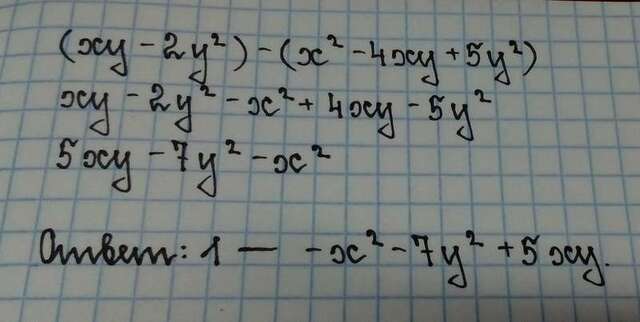 (xy - 2y²) - (x² - 4xy + 5y²)
xy - 2y² - x² + 4xy - 5y²
5xy - 7y² - x²
Ответ: 1 — -x² - 7y² + 5xy.